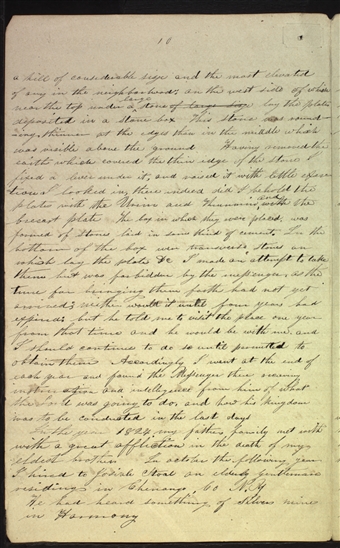 10
a hill of considerable size and the most elevated
of any in the neighborhood; on the west side of which
near the top under a large stone of large size lay the plates
deposited in a stone box This stone was round-
ing, thinner at the edges then in the middle which
was visible above the ground Having removed the
earth which covered the thin edge of the stone I
fixed a lever under it, and raised it with little exer-
tion I looked in, there indeed did I behold the
plates with the Urim and Thummim, and with the
breast plate The box in which they were placed, was
formed of stones laid in some kind of cement. In the
bottom of the box were transverse stones on
which lay the plates &c I made an attempt to take
them but was forbidden by the messenger, as the
time for bringing them forth had not yet
arrived; neither would it until four years had
expired; but he told me to visit the place one year
from that time and he would be with me, and
I should continues to do so until permitted to
obtain them Accordingly I went at the end of
each year and found the Messenger there
and intelligence from him of what
the was going to do, and how his kingdom
was to be conducted in the last days
In the year 1824 my fathers family met with
with a great affliction in the death of my
eldest brother In october the following year
I hired to Josiah Stoal an elderly gentleman
residing in Chenango, Co N.Y
He had heard something of Silver mines
in Harmony